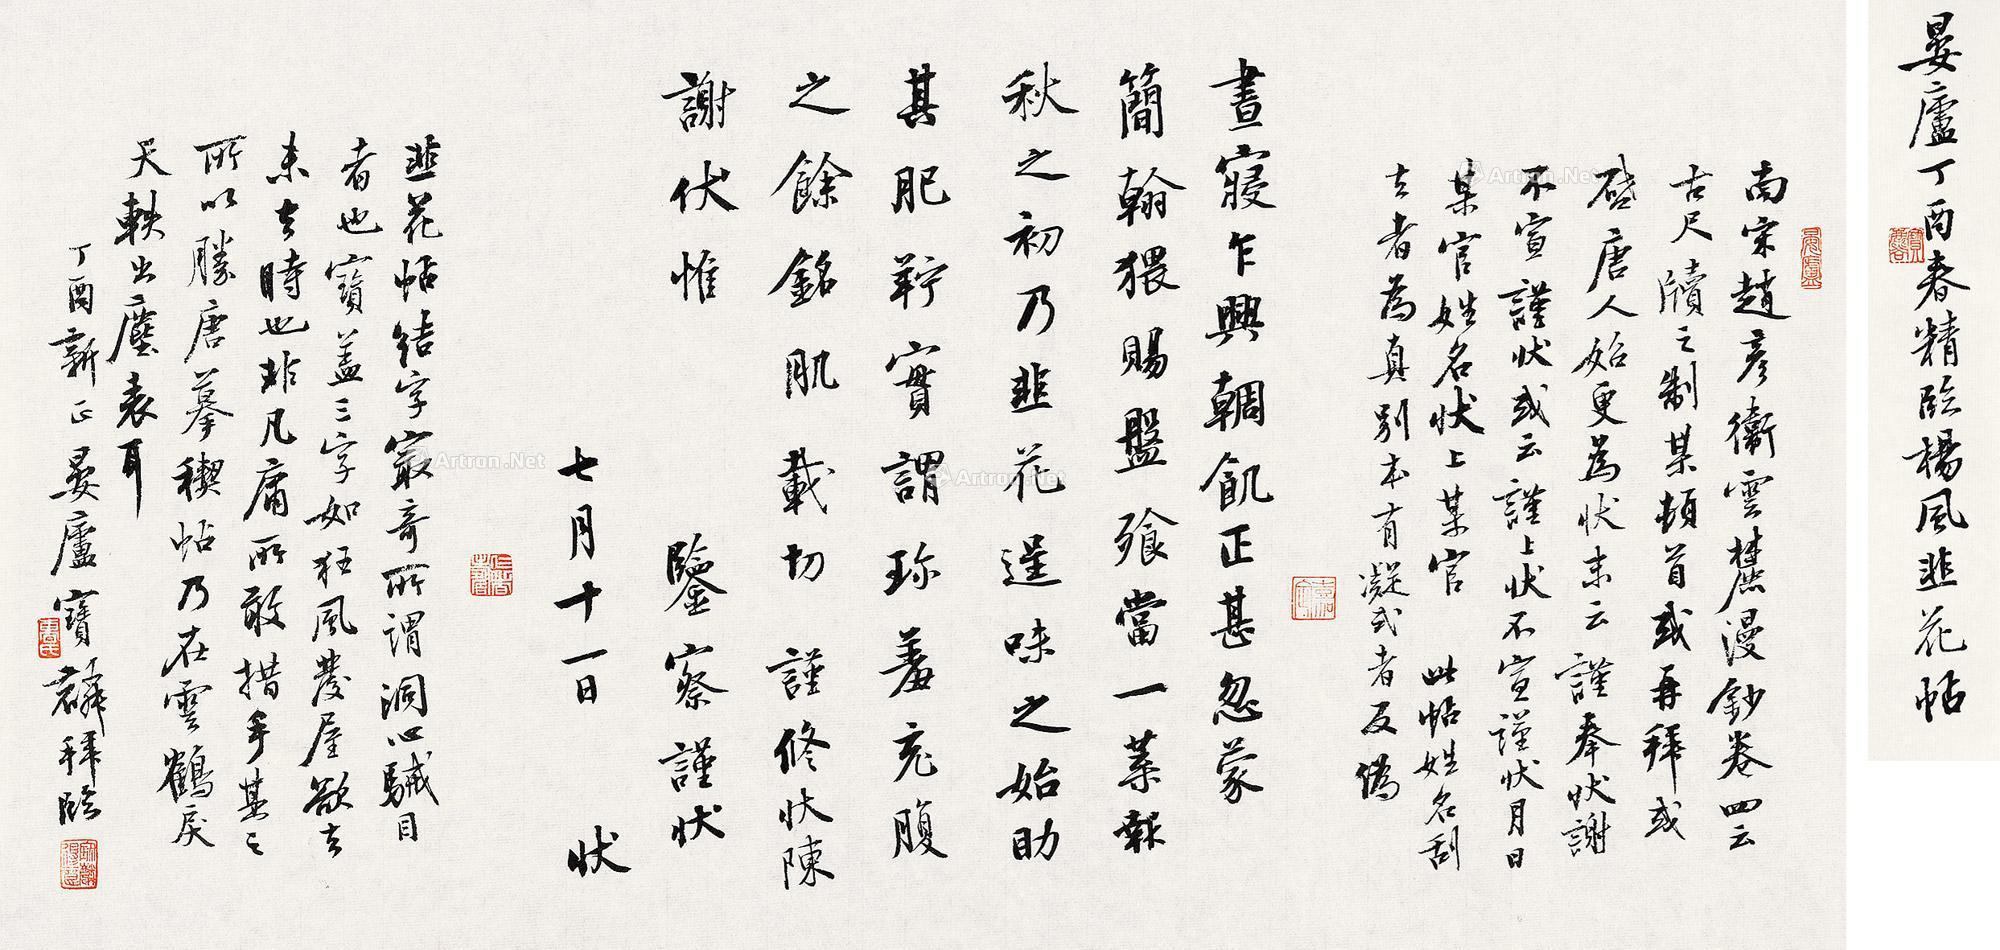 晏廬丁酉春精臨楊風韭花帖
南宋趙彥衛雲麓漫鈔卷四云
古尺牘之制某頓首或再拜或
啟唐人始更為狀末云謹奉狀謝
不宣謹狀或云謹上狀不宣謹狀月日
某官姓名狀上某官 此帖姓名刮
去者為真別本有凝式者反偽
晝寢乍興輖飢正甚忽蒙
簡翰猥賜盤飧當一葉報
秋之初乃韭花逞味之始助
其肥羜實謂珍羞充腹
之餘銘肌載切謹修狀陳
謝伏惟
鑒察謹狀
七月十一日 狀
韭花帖結字寂奇所謂洞心駴目
者也寶蓋三字如狂風發屋欲去
未去時也非凡庸所敢措手其之
所以勝唐摹稧帖乃在雲鶴戾
天軼出塵表耳
丁酉新正晏廬寶麟拜臨
Artron.Net
Artron.Net
Artron.Net